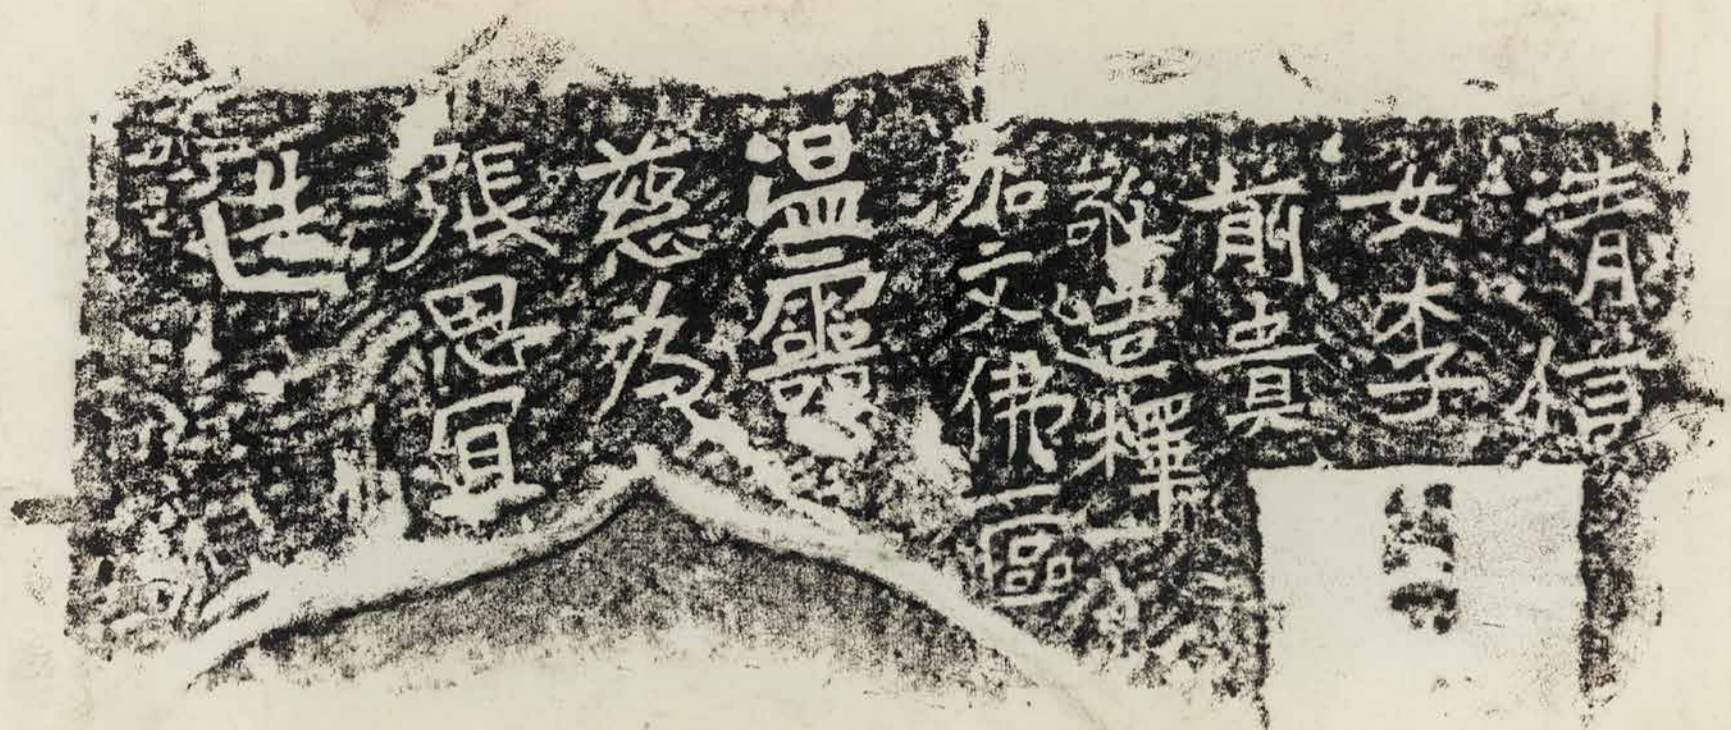 清信
女李
前貴
敬造釋
加文佛一區
温靈
慈為
張思冝
造